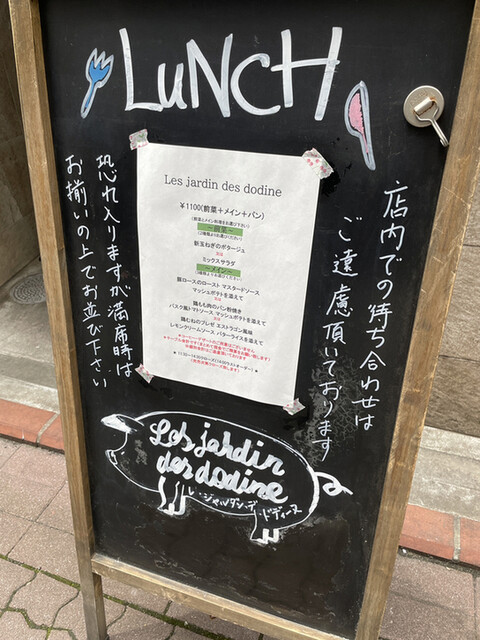 LuNCH
店内での待ち合わせは
ご遠慮頂いております
恐れ入りますが満席時は
お揃いの上でお並び下さい
Les jardin des dodine
￥1100(前菜＋メイン＋パン)
～前菜～
新玉ねぎのポタージュ
又は
ミックスサラダ
～メイン～
豚ロースのロースト マスタードソース
マッシュポテトを添えて
又は
鶏もも肉のパン粉焼き
バスク風トマトソース マッシュポテトを添えて
又は
鶏むねのブレゼ エストラゴン風味
レモンクリームソース バターライスを添えて
Les jardin
des dodine
レ・ジャルダン・デ・ドディーヌ